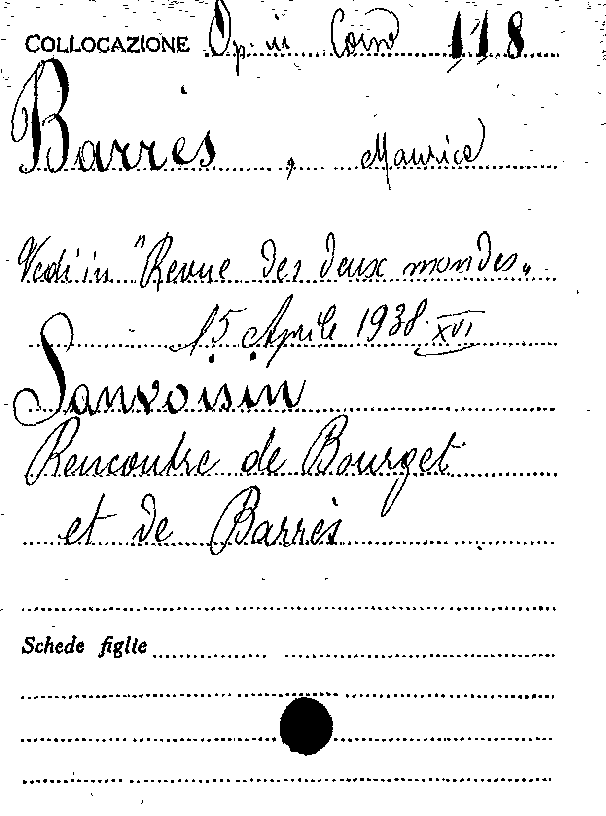 COLLOCAZIONE Op. in Coin 118
Barrès, Maurice
Vedi in "Revue des deux mondes"
15 Aprile 1938 XVI
Sanvoisin
Rencontre de Bourget
et de Barrès
Schede figlie